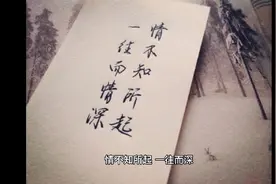 情不知所起
一往而情深
情不知所起 一往而深